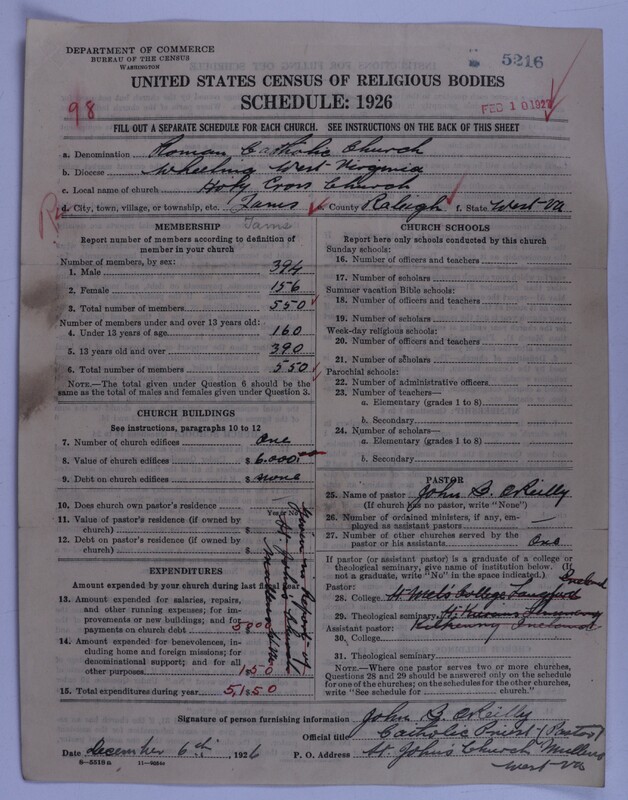 DEPARTMENT OF COMMERCE
BUREAU OF THE CENSUS
WASHINGTON
5216
UNITED STATES CENSUS OF RELIGIOUS BODIES
SCHEDULE: 1926
98
FEB 10 1927
FILL OUT A SEPARATE SCHEDULE FOR EACH CHURCH. SEE INSTRUCTIONS ON THE BACK OF THIS SHEET
a. Denomination Roman Catholic Church
b. Diocese Wheeling West Virginia
c. Local name of church Holy Cross Church
d. City, town, village, or township, etc. Tams e. County Raleigh f. State West Va
Tams
MEMBERSHIP
Report number of members according to definition of member in your church
Number of members, by sex:
1. Male 394
2. Female 156
3. Total number of members 550
Number of members under and over 13 years old:
4. Under 13 years of age 160
5. 13 years old and over 390
6. Total number of members 550
NOTE.—The total given under Question 6 should be
the same as the total of males and females given under Question 3.
CHURCH BUILDINGS
See instructions, paragraphs 10 to 12
7. Number of church edifices One
8. Value of church edifices $ 6.000.00
9. Debt on church edifices $ none
10. Does church own pastor's residence
Yes or No
11. Value of pastor's residence (if owned by
church) $
12. Debt on pastor's residence (if owned by
church) $
Given in Report of
St. John's Church
EXPENDITURES
Amount expended by your church during last fiscal year
13. Amount expended for salaries, repairs,
and other running expenses; for im-
provements or new buildings; and for
payments on church debt $ 5000
14. Amount expended for benevolences, in-
cluding home and foreign missions; for
denominational support; and for all
other purposes 150
15. Total expenditures during year $ 5,150
CHURCH SCHOOLS
Report here only schools conducted by this church
Sunday schools:
16. Number of officers and teachers
17. Number of scholars
Summer vacation Bible schools:
18. Number of officers and teachers
19. Number of scholars
Week-day religious schools:
20. Number of officers and teachers
21. Number of scholars
Parochial schools:
22. Number of administrative officers
23. Number of teachers—
a. Elementary (grades 1 to 8)
b. Secondary
24. Number of scholars—
a. Elementary (grades 1 to 8)
b. Secondary
PASTOR
25. Name of pastor John G. O'Reilly
(If church has no pastor, write "None")
26. Number of ordained ministers, if any, em-
ployed as assistant pastors —
27. Number of other churches served by the
pastor or his assistants One
If pastor (or assistant pastor) is a graduate of a college or
theological seminary, give name of institution below. (If
not a graduate, write "No" in the space indicated.)
Pastor: Ireland
28. College St Mel's College Longford
29. Theological seminary St. Kieran's Seminary
Assistant pastor: Kilkenny Ireland
30. College
31. Theological seminary
NOTE.—Where one pastor serves two or more churches,
Questions 28 and 29 should be answered only on the schedule
for one of the churches; on the schedules for the other churches,
write "See schedule for church."
Signature of person furnishing information John G. O'Reilly
Official title Catholic Priest (Pastor)
Date December 6th, 1926 P. O. Address St. John's Church Mullens
West Va
8—5518a 11—9084a